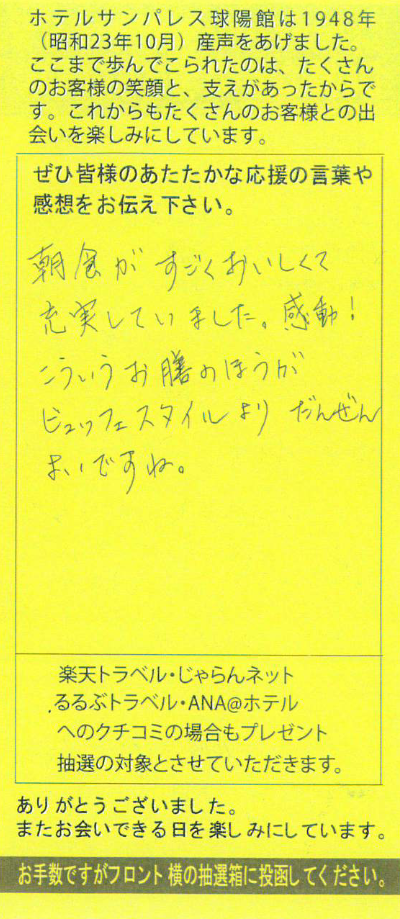 ホテルサンパレス球陽館は1948年
（昭和23年10月）産声をあげました。
ここまで歩んでこられたのは、たくさん
のお客様の笑顔と、支えがあったからで
す。これからもたくさんのお客様との出
会いを楽しみにしています。
ぜひ皆様のあたたかな応援の言葉や
感想をお伝え下さい。
朝食がすごくおいしくて
充実していました。感動！
こういうお膳のほうが
ビュッフェスタイルより だんぜん
よいですね。
楽天トラベル・じゃらんネット
るるぶトラベル・ANA@ホテル
へのクチコミの場合もプレゼント
抽選の対象とさせていただきます。
ありがとうございました。
またお会いできる日を楽しみにしています。
お手数ですがフロント横の抽選箱に投函してください。